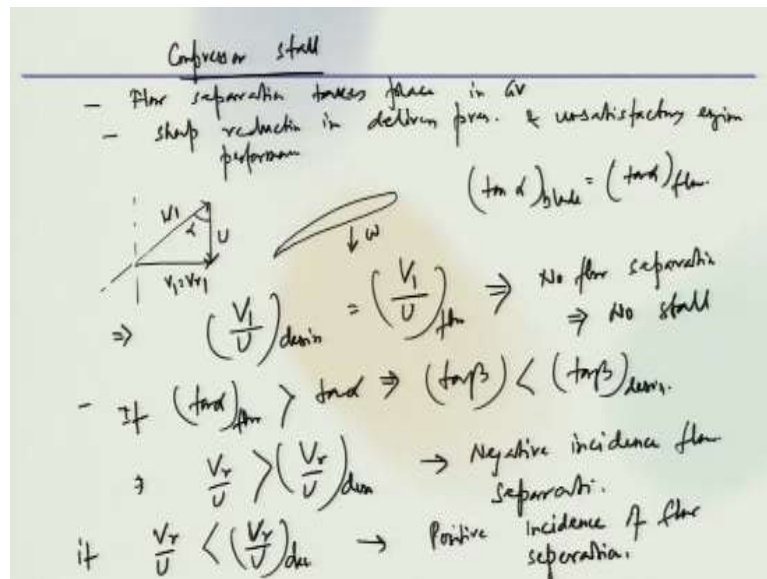 Compressor stall
- Flow separation takes place in GV
- sharp reduction in delivery pres. & unsatisfactory engine
performance
(tan α)blade = (tan α)flow.
W1
α
U
V1=Vr1
ω
⇒ (V1/U)design = (V1/U)flow ⇒ No flow separation
⇒ No stall
- If (tan α)flow > tan α ⇒ (tan β) < (tan β)design.
⇒ Vr/U > (Vr/U)design → Negative incidence flow
separation.
if Vr/U < (Vr/U)des → Positive incidence flow
seperation.